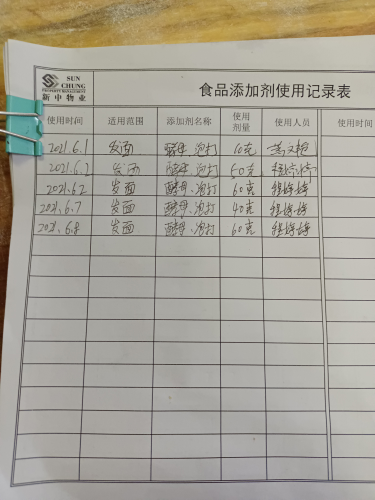 SUN
CHUNG
PROPERTY MANAGEMENT
新中物业
食品添加剂使用记录表
使用时间 适用范围 添加剂名称 使用剂量 使用人员 使用时间
2021.6.1 发面 酵母、泡打 60克
2021.6.2 发面 酵母、泡打 50克 程婷婷
2021.6.2 发面 酵母、泡打 60克 程婷婷
2021.6.7 发面 酵母、泡打 40克 程婷婷
2021.6.8 发面 酵母、泡打 60克 程婷婷